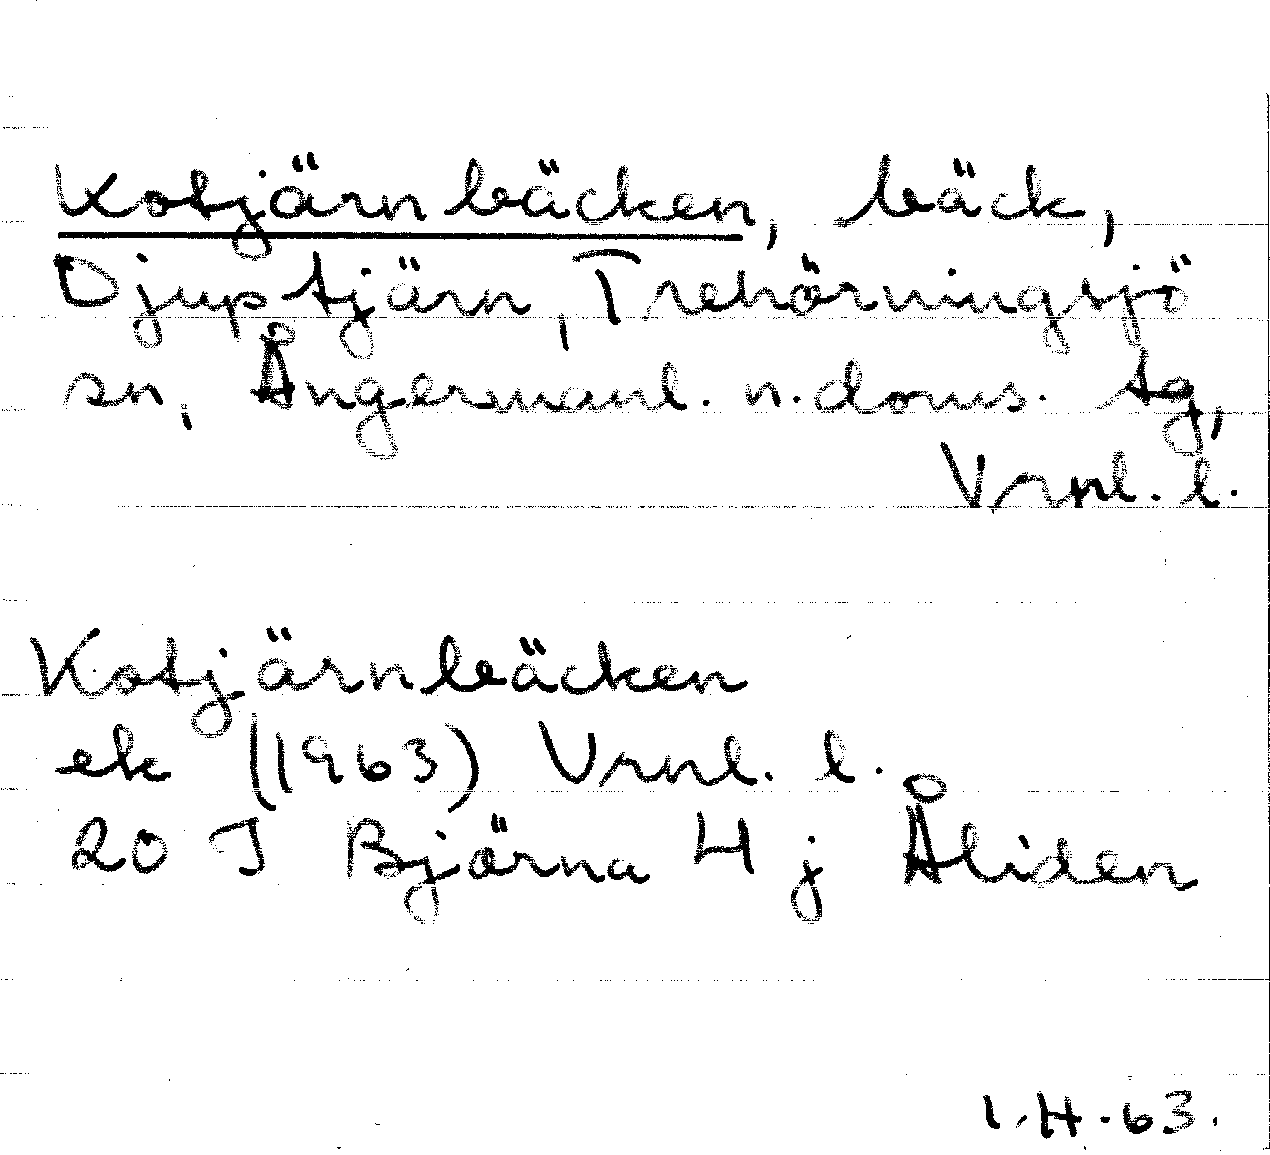 Kotjärnbäcken, bäck,
Djuptjärn, Trehörningsjö
sn, Ångermanl. n. doms. tg,
Vrnl. l.
Kotjärnbäcken
ek (1963) Vrnl. l.
20 J Björna 4 j Åliden
I.H.63.